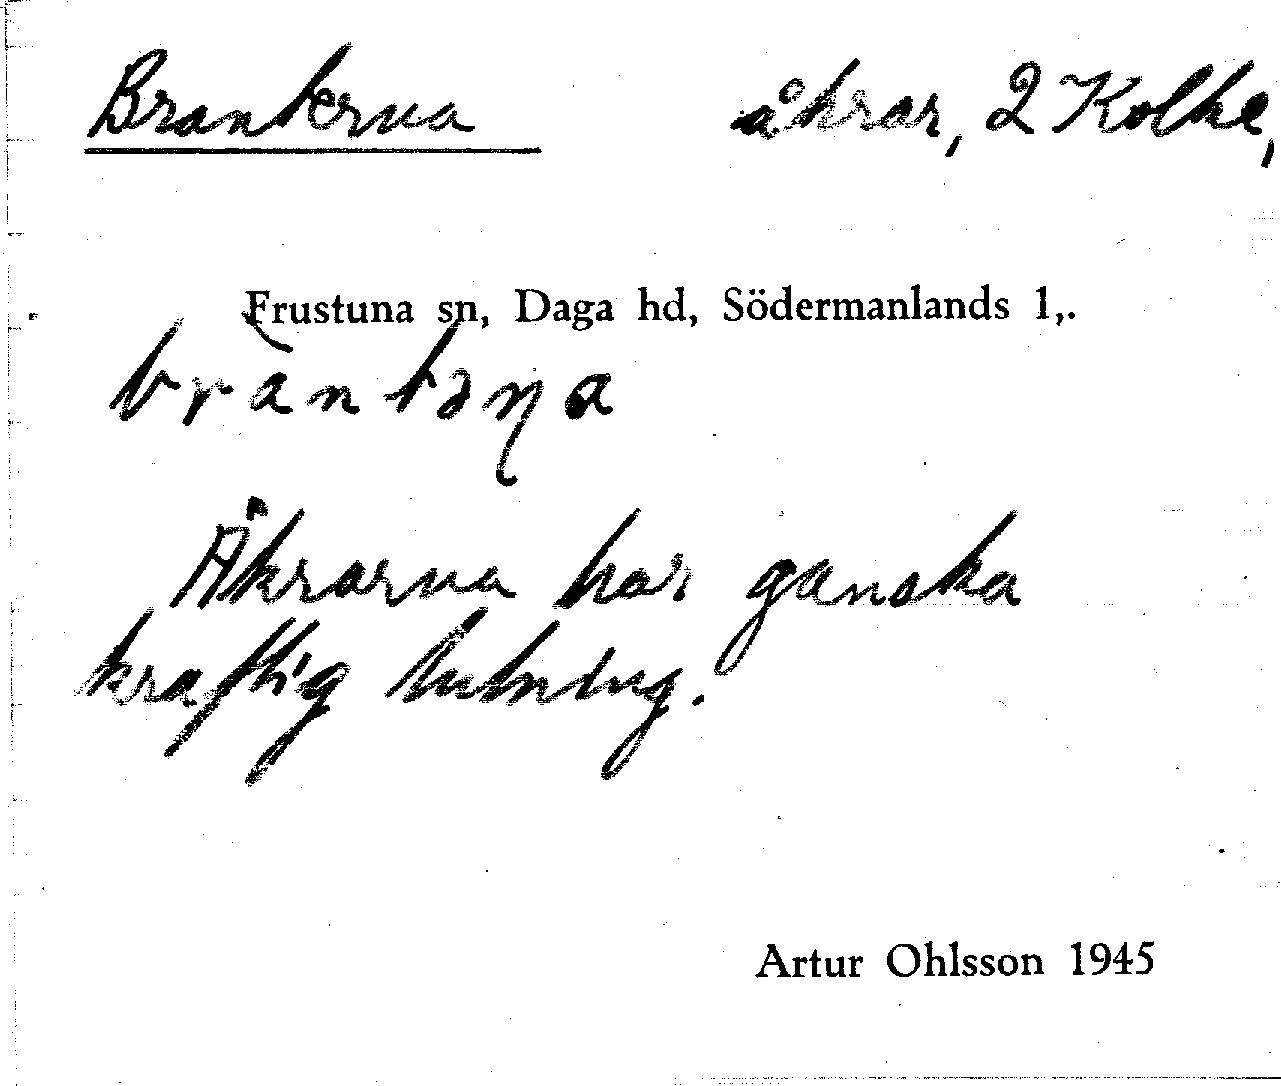 Branterna åkrar, 2 Kolke,
Frustuna sn, Daga hd, Södermanlands l,.
bràntəṇa
Åkrarna har ganska
kraftig lutning.
Artur Ohlsson 1945